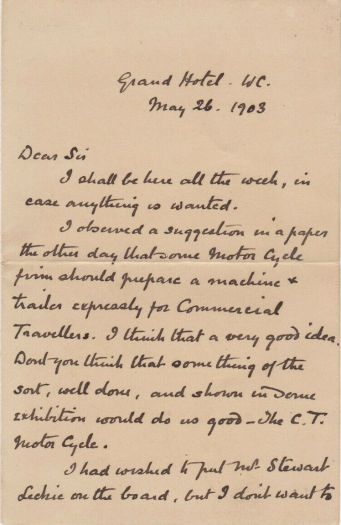 Grand Hotel. WC.
May 26. 1903
Dear Sir
I shall be here all the week, in
case anything is wanted.
I observed a suggestion in a paper
the other day that some Motor Cycle
firm should prepare a machine &
trailer expressly for Commercial
Travellers. I think that a very good idea.
Dont you think that something of the
sort, well done, and shown in some
exhibition would do us good - The C.T.
Motor Cycle.
I had wished to put Mr Stewart
Leckie on the board, but I don't want to